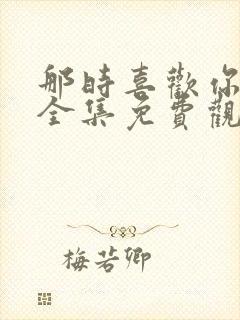 那時喜歡你
全集免費觀
梅若卿